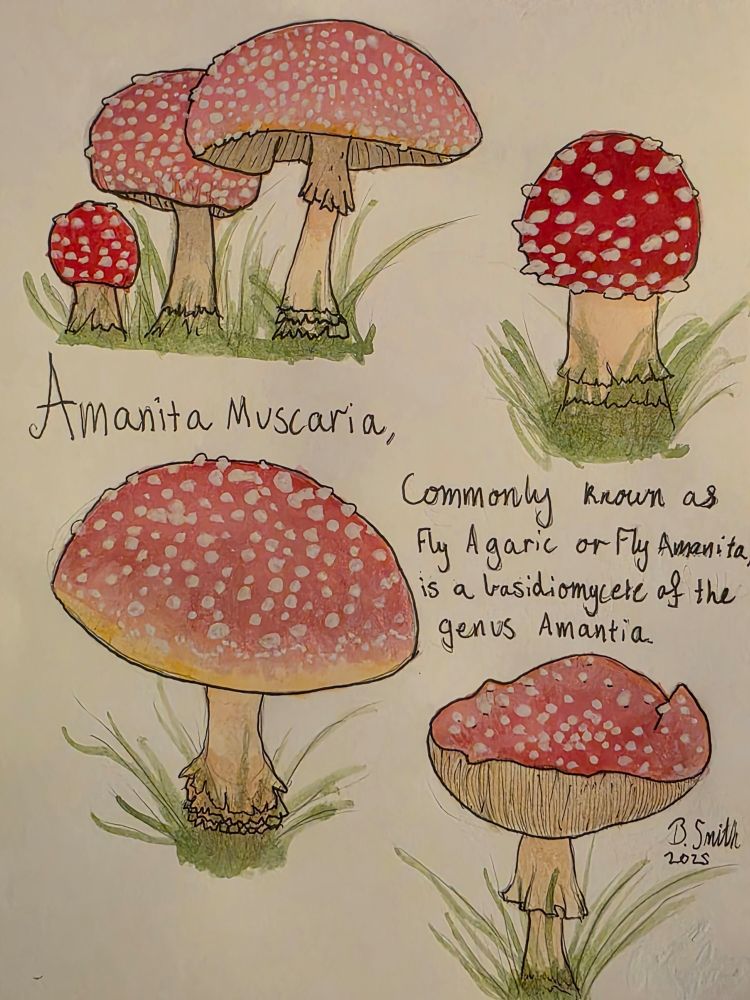 Amanita Muscaria,
Commonly known as
Fly Agaric or Fly Amanita,
is a basidiomycete of the
genus Amantia.
B. Smith
2025